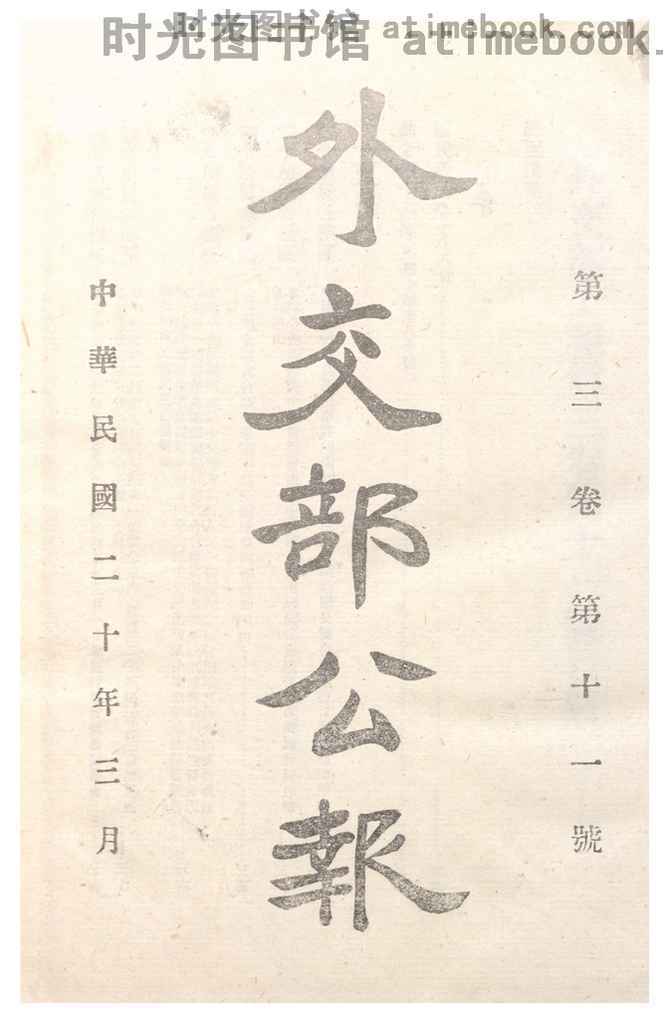 时光图书馆 atimebook.com
时光图书馆 atimebook.
第三卷第十一號
外交部公報
中華民國二十年三月